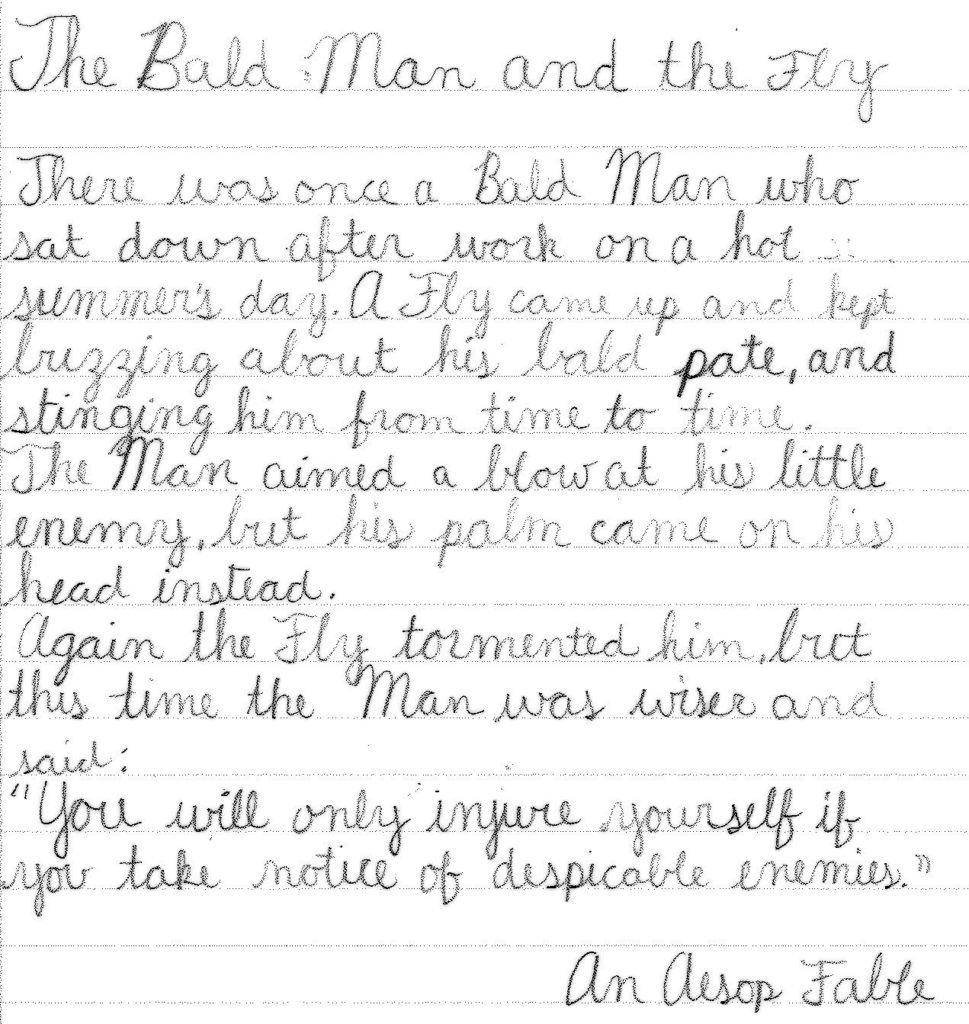 The Bald Man and the Fly
There was once a Bald Man who
sat down after work on a hot
summer's day. A Fly came up and kept
buzzing about his bald pate, and
stinging him from time to time.
The Man aimed a blow at his little
enemy, but his palm came on his
head instead.
Again the Fly tormented him, but
this time the Man was wiser and
said:
"You will only injure yourself if
you take notice of despicable enemies."
An Aesop Fable